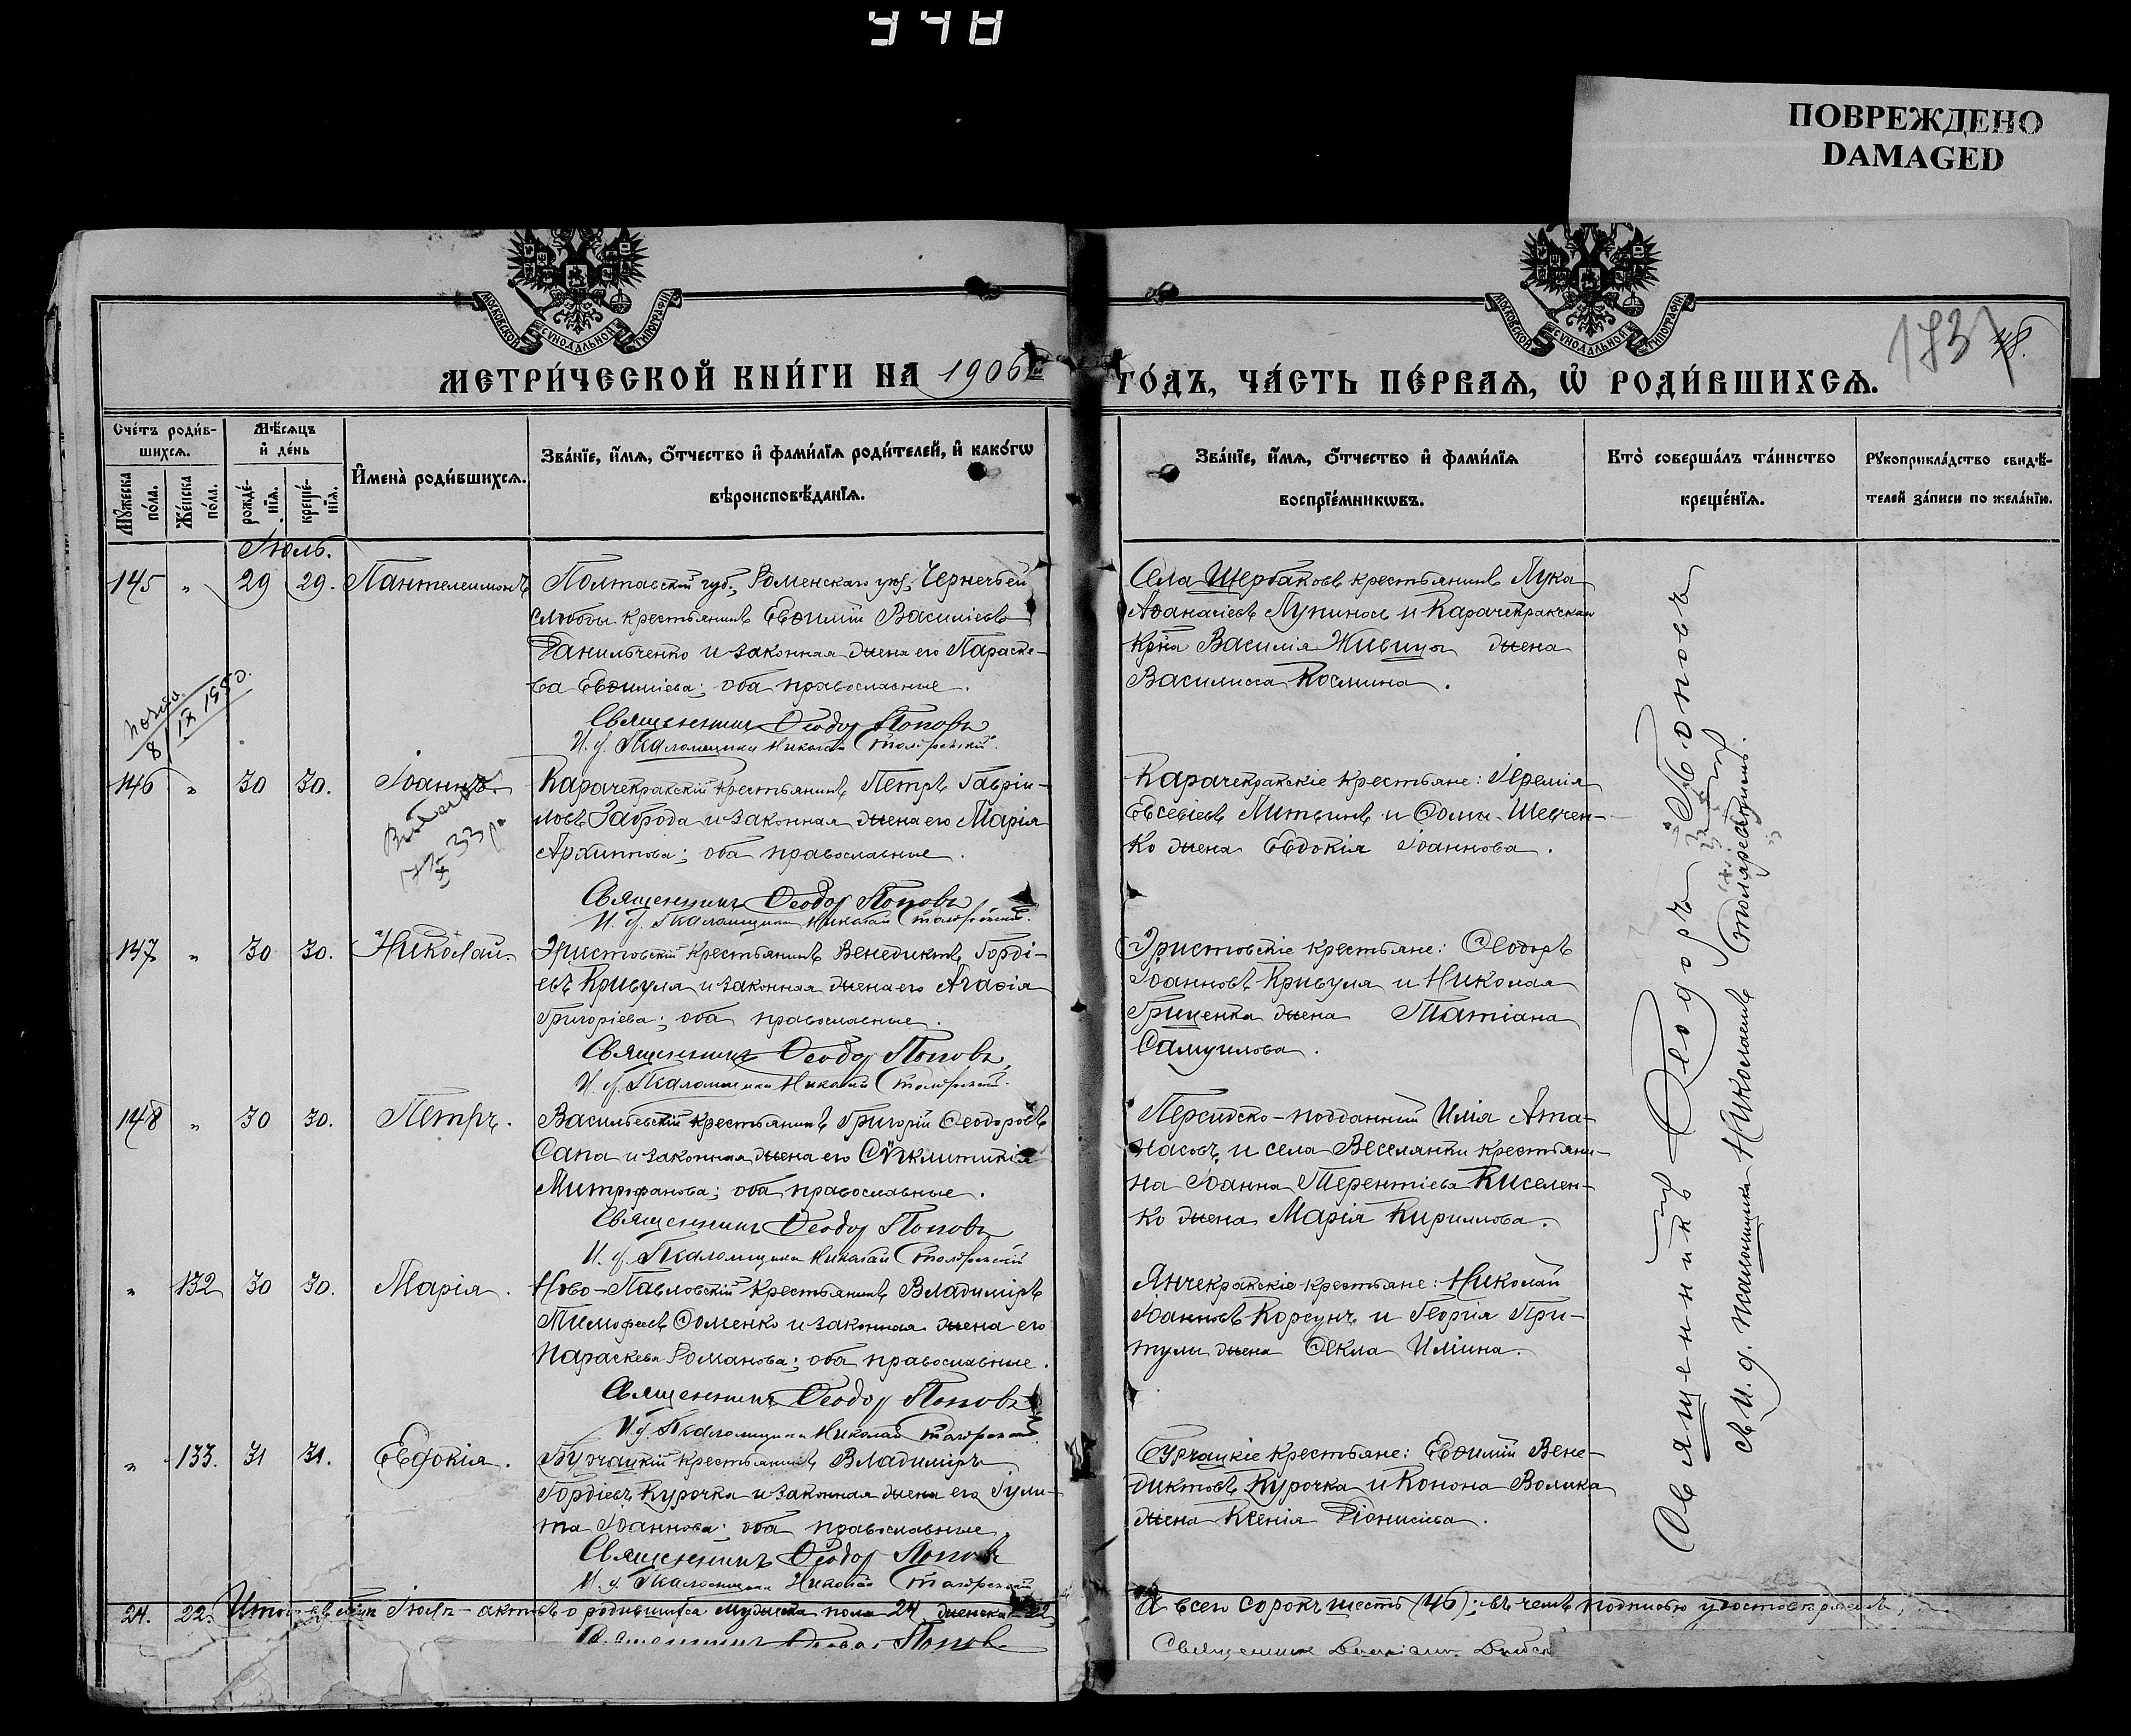 948
ПОВРЕЖДЕНО
DAMAGED
МОСКОВСКОЙ СѴНОДАЛЬНОЙ ТИПОГРАФІИ
МОСКОВСКОЙ СѴНОДАЛЬНОЙ ТИПОГРАФІИ
183 48.
МЕТРИ́ЧЕСКОЙ КНИ́ГИ НА 1906й ГО́ДЪ, ЧА́СТЬ ПЕ́РВАѦ, Ѡ РОДИ́ВШИХСѦ.
Сче́тъ роди́в-
шихсѧ.
Мꙋжеска по́ла.
Же́нска по́ла.
Мѣ́сѧцъ
и҆ де́нь
рожде́-
нїѧ.
креще́-
нїѧ.
И҆мена̀ роди́вшихсѧ.
Зва́нїе, и҆́мѧ, ѻ҆́тчество и҆ фами́лїѧ роди́телей, и҆ како́гѡ
вѣроисповѣ́данїѧ.
Зва́нїе, и҆́мѧ, ѻ҆́тчество и҆ фами́лїѧ
воспрїе́мникѡвъ.
Кто̀ соверша́лъ та́инство
креще́нїѧ.
Рꙋкоприкла́дство свидѣ́-
телей за́писи по жела́нїю.
Іюль.
145 " 29 29. Пантелеимонъ
Полтавской губ., Роменскаго уѣз., Чернечьей
слободы крестьянинъ Евѳимій Василіевъ
Данильченко и законная жена его Параске-
ва Евѳиміева; оба православные.
Священникъ Ѳеодоръ Поповъ
И. д. Псаломщика Николай Столяревскій.
Села Щербаковъ крестьянинъ Лука
Аѳанасіевъ Лупиносъ и Карачекракская
кр-на Василія Живицы жена
Василисса Космина.
8/IX 1950.
146 " 30 30. Іоаннъ.
Карачекракскій крестьянинъ Петръ Гаврiи-
ловъ Загрода и законная жена его Марія
Архиппова; оба православные.
Священникъ Ѳеодоръ Поповъ
И. д. Псаломщика Николай Столяревскій.
Карачекракскіе крестьяне: Іеремія
Евсевіевъ Литвинъ и Ѳомы Шевчен-
ко жена Евдокія Іоаннова.
147 " 30 30. Николай.
Эристовскій крестьянинъ Венедиктъ Горді-
евъ Кривуля и законная жена его Агаѳія
Григоріева; оба православные.
Священникъ Ѳеодоръ Поповъ
И. д. Псаломщика Николай Столяревскій.
Эристовскіе крестьяне: Ѳеодоръ
Іоанновъ Кривуля и Николая
Гриценка жена Татіана
Самуилова.
148 " 30 30. Петръ.
Васильевскій крестьянинъ Григорій Ѳеодоровъ
Сапа и законная жена его Сѵнклитикія
Митрофанова; оба православные.
Священникъ Ѳеодоръ Поповъ
И. д. Псаломщика Николай Столяревскій
Персидско-подданный Илія Ата-
насовъ и села Веселянки крестьяни-
на Іоанна Терентіева Киселен-
ко жена Марія Кириллова.
" 132 30 30. Марія.
Ново-Павловскій крестьянинъ Владиміръ
Тимофеевъ Ѳоменко и законная жена его
Параскева Романова; оба православные.
Священникъ Ѳеодоръ Поповъ
И. д. Псаломщика Николай Столяревскій.
Янчекракскіе крестьяне: Николай
Іоанновъ Корсунъ и Георгія При-
тулы жена Ѳекла Иліина.
" 133. 31 31. Евдокія.
Бурчацкій крестьянинъ Владиміръ
Гордіевъ Курочка и законная жена его Іули-
та Іоаннова; оба православные.
Священникъ Ѳеодоръ Поповъ
И. д. Псаломщика Николай Столяревскій
Бурчацкіе крестьяне: Евѳимій Вене-
диктовъ Курочка и Конона Волика
жена Ксенія Діонисіева.
Священникъ Ѳеодоръ Поповъ
съ и. д. псаломщика Николаемъ Столяревскимъ.
24. 22. Итого въ мѣсяцѣ Іюлѣ - актовъ о родившихся мужеска пола 24, женска - 22,
А всего сорокъ шесть (46); въ чемъ подписью удостовѣряемъ,
Священникъ Ѳеодоръ Поповъ
Священникъ